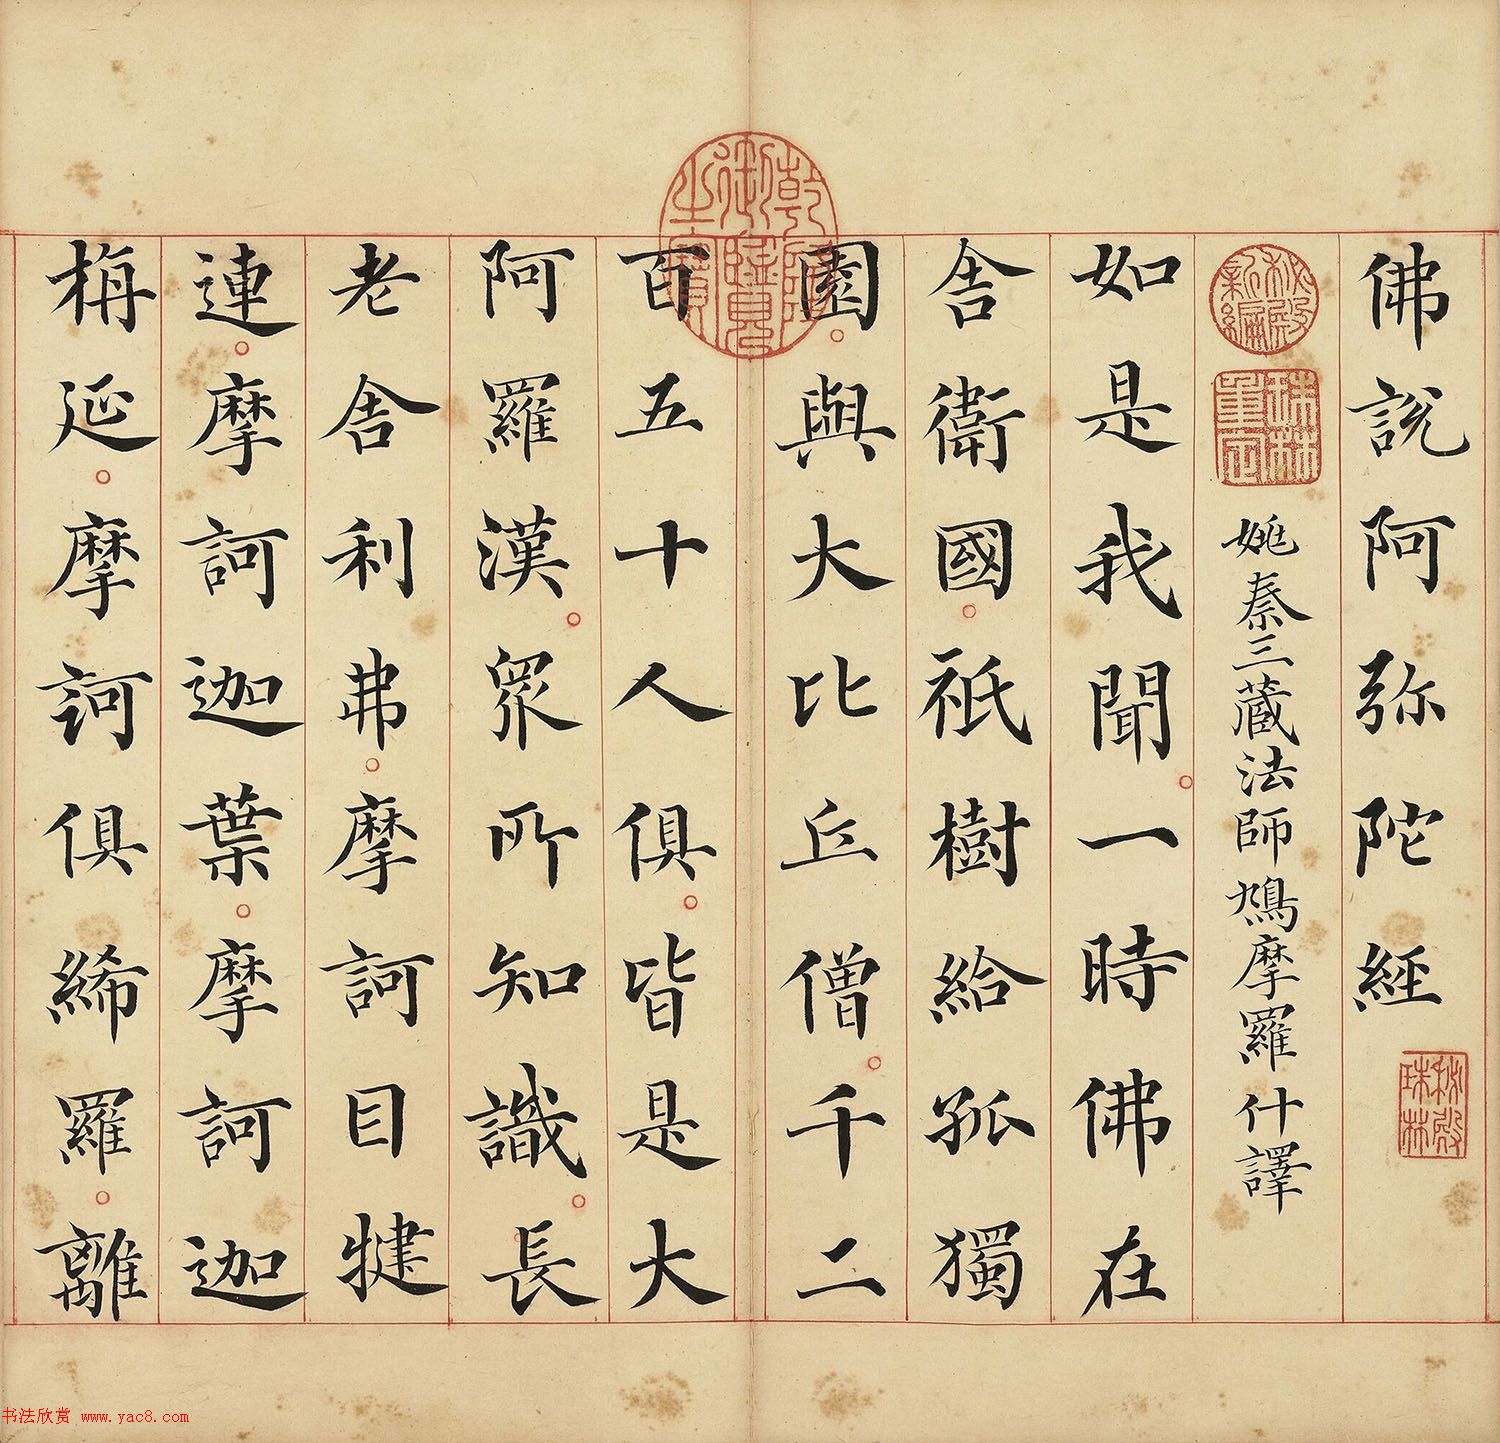 佛說阿弥陀經
秘殿珠林
秘殿新編
珠林重定
姚秦三藏法師鳩摩羅什譯
如是我聞。一時佛在
舍衛國。祇樹給孤獨
園。與大比丘僧。千二
乾隆御覽之寶
百五十人俱。皆是大
阿羅漢。眾所知識。長
老舍利弗。摩訶目犍
連。摩訶迦葉。摩訶迦
栴延。摩訶俱絺羅。離
书法欣赏 www.yac8.com